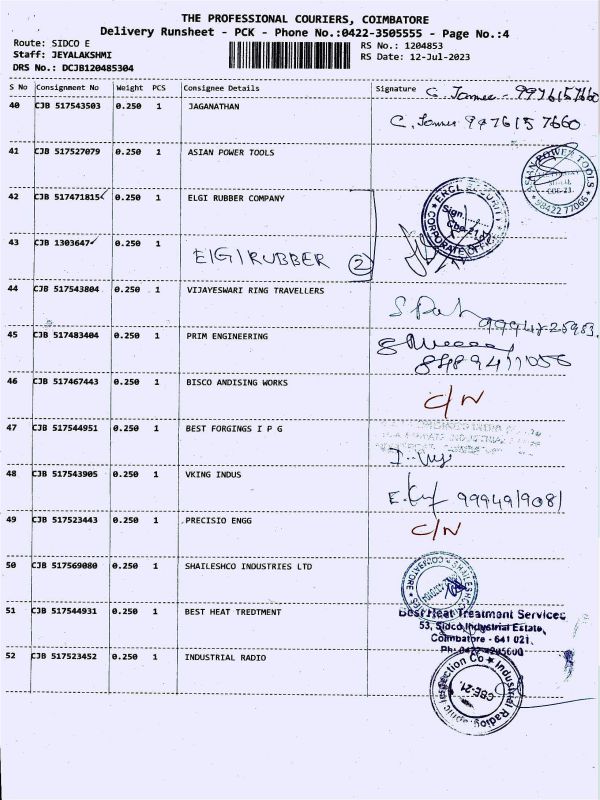 THE PROFESSIONAL COURIERS, COIMBATORE
Delivery Runsheet - PCK - Phone No.:0422-3505555 - Page No.:4
Route: SIDCO E
RS No.: 1204853
Staff: JEYALAKSHMI
RS Date: 12-Jul-2023
DRS No.: DCJB120485304
S No Consignment No Weight PCS Consignee Details Signature C. James - 9976157660
40 CJB 517543503 0.250 1 JAGANATHAN
C. James 9976157660
41 CJB 517527079 0.250 1 ASIAN POWER TOOLS
ASIAN POWER TOOLS
CBE-21
98422 77066
42 CJB 517471815 0.250 1 ELGI RUBBER COMPANY
ERCL SECURITY
Sign
Cbe-21
CORPORATE OFFICE
43 CJB 1303647 0.250 1
ElGI RUBBER 2
44 CJB 517543804 0.250 1 VIJAYESWARI RING TRAVELLERS
45 CJB 517483404 0.250 1 PRIM ENGINEERING
46 CJB 517467443 0.250 1 BISCO ANDISING WORKS
C/N
47 CJB 517544951 0.250 1 BEST FORGINGS I P G
48 CJB 517543905 0.250 1 VKING INDUS
9994919081
49 CJB 517523443 0.250 1 PRECISIO ENGG
C/N
50 CJB 517569080 0.250 1 SHAILESHCO INDUSTRIES LTD
COIMBATORE
51 CJB 517544931 0.250 1 BEST HEAT TREDTMENT
Best Heat Treatment Services
53, Sidco Industrial Estate,
Coimbatore - 641 021.
52 CJB 517523452 0.250 1 INDUSTRIAL RADIO
Inspection Co ★ Industrial Radiographic
CBE-21.